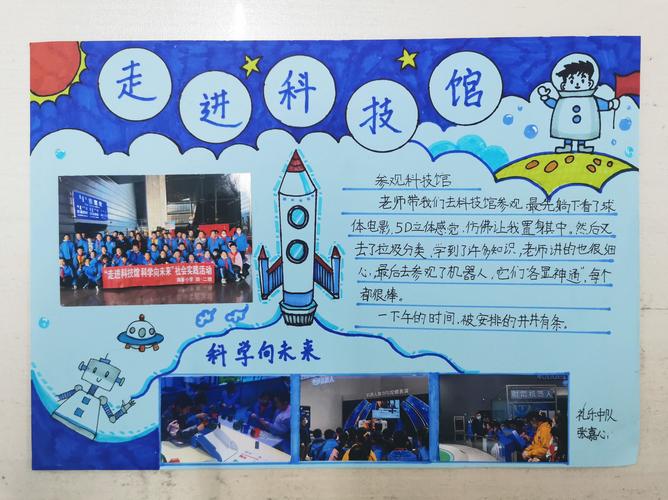 走进科技馆
参观科技馆
老师带我们去科技馆参观,最先躺下看了球
体电影,5D立体感觉,仿佛让我置身其中。然后又
去了垃圾分类,学到了许多知识,老师讲的也很细
心,最后去参观了机器人,它们“各显神通”,每个
都很棒。
一下午的时间,被安排的井井有条。
"走进科技馆 科学向未来"社会实践活动
科学向未来
礼乐中队
张嘉心